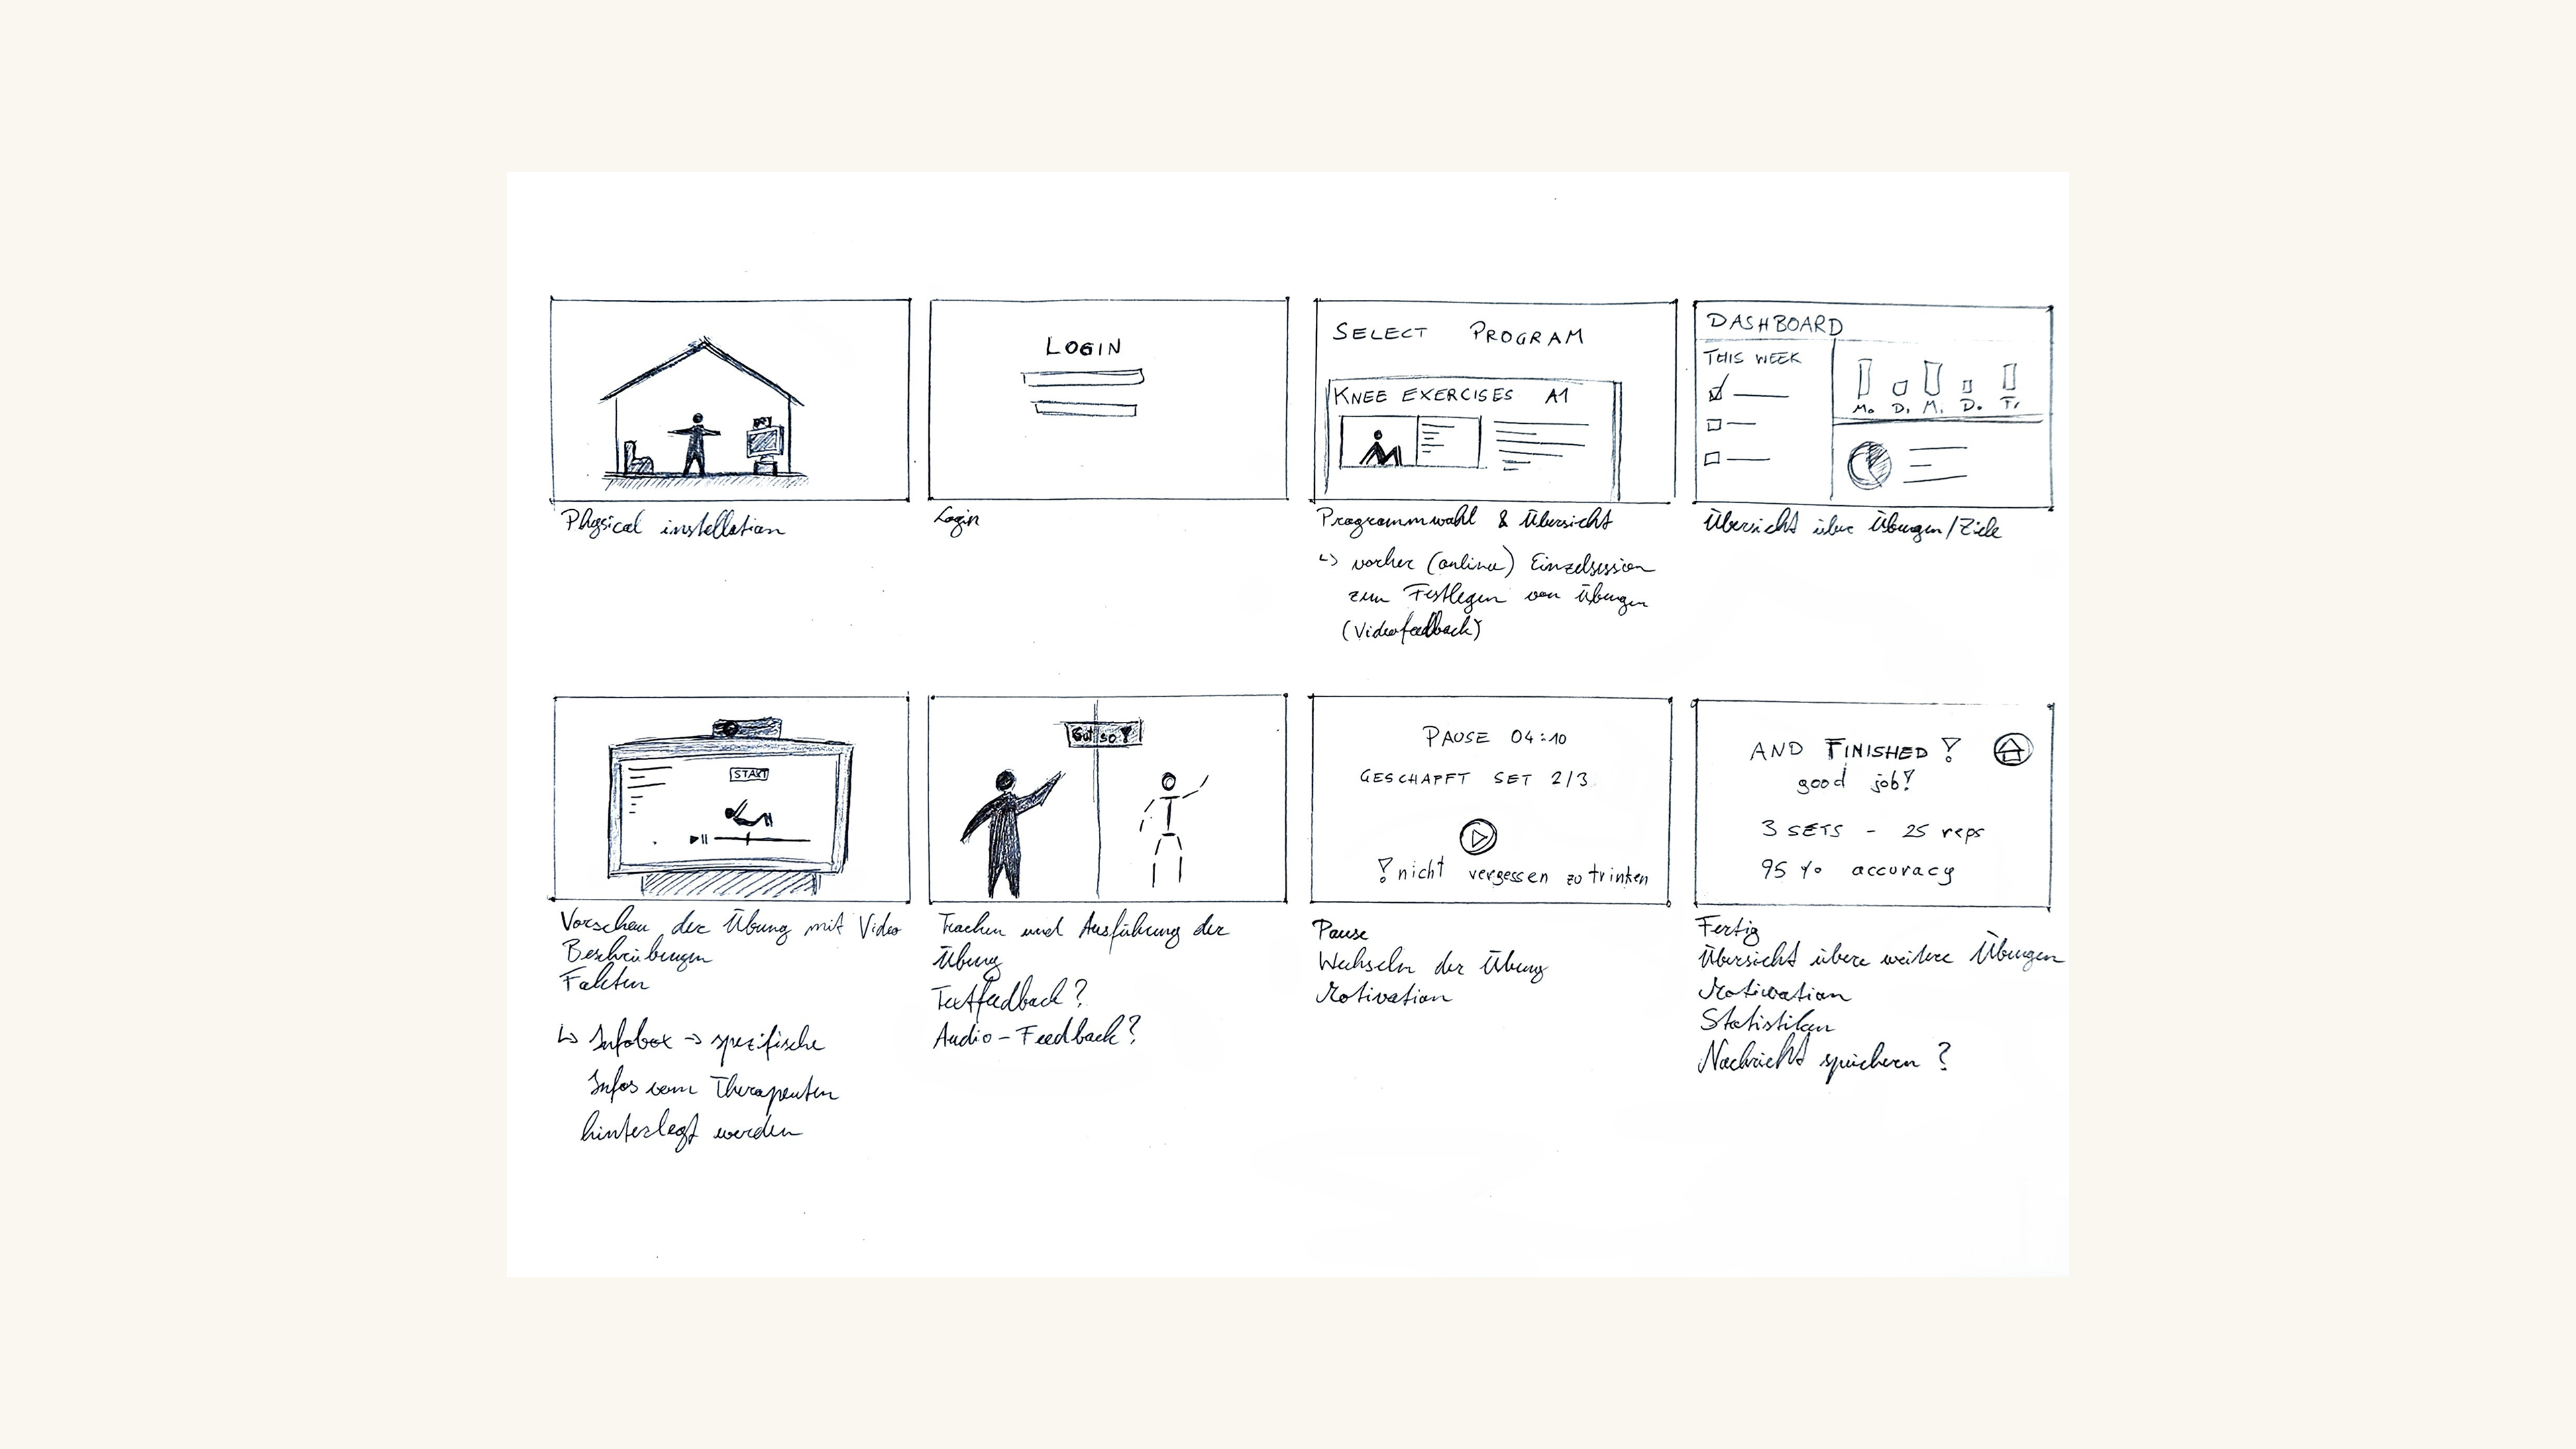 Physical installation
LOGIN
Login
SELECT PROGRAM
KNEE EXERCISES A1
Programmwahl & Übersicht
↳ vorher (online) Einzelsession
zum Festlegen von Übungen
(Videofeedback)
DASHBOARD
THIS WEEK
Mo D. M. D. Fr
Übersicht über Übungen/Ziele
START
Vorschau der Übung mit Video
Beschreibungen
Fakten
↳ Infobox → spezifische
Infos vom Therapeuten
hinterlegt werden
Gut so!
Tracken und Ausführung der
Übung
Textfeedback?
Audio-Feedback?
PAUSE 04:10
GESCHAFFT SET 2/3
! nicht vergessen zu trinken
Pause
Wechseln der Übung
Motivation
AND FINISHED!
good job!
3 SETS - 25 reps
95 % accuracy
Fertig
Übersicht übere weitere Übungen
Motivation
Statistiken
Nachricht speichern?